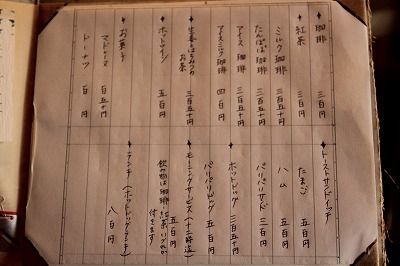 ◆珈琲 三百円
◆紅茶 三百円
ミルク珈琲 三百五十円
たんぽぽ珈琲 三百五十円
アイス珈琲 三百五十円
アイスミルク珈琲 四百円
◆生姜とはちみつのお茶 三百五十円
◆ホットワイン 五百円
◆お菓子
マドレーヌ 百五十円
ドーナツ 百円
◆トーストサンドイッチ
たまご 五百円
ハム 五百円
パリパリサンド 三百円
◆ホットドッグ 三百五十円
パリパリドッグ 五百円
◆モーニングサービス(十二時迄) 五百円
飲み物は珈琲・紅茶
付きます
◆ランチ(ホットドッグランチ) 八百円